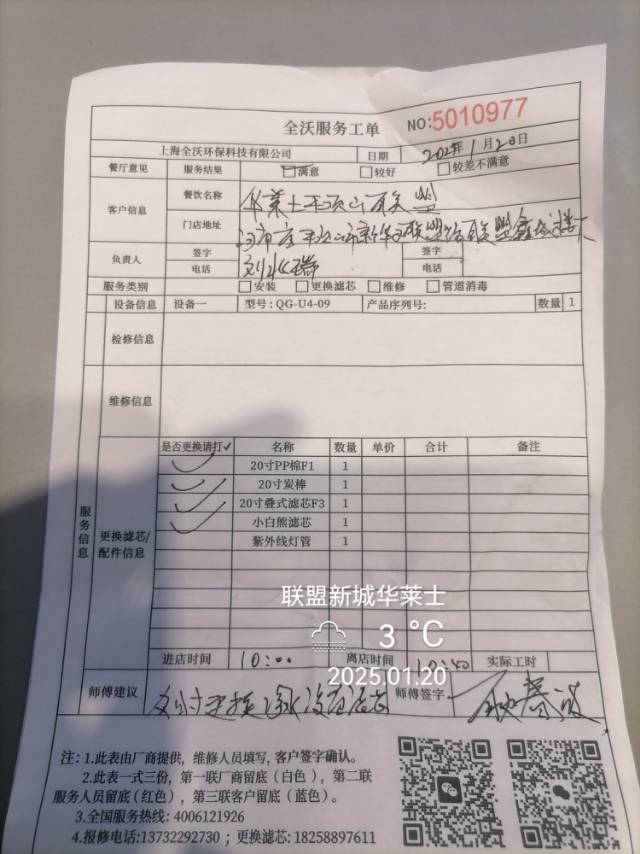 全沃服务工单
NO:5010977
上海全沃环保科技有限公司 日期 2025年1月20日
餐厅意见 服务结果 满意 较好 较差不满意
客户信息 餐饮名称 华莱士平顶山联盟
门店地址
负责人 签字 签字
电话 电话
服务类别 安装 更换滤芯 维修 管道消毒
设备信息 设备一 型号:QG-U4-09 产品序列号: 数量 1
检修信息
维修信息
服务信息
更换滤芯/配件信息
是否更换请打✓ 名称 数量 单价 合计 备注
✓ 20寸PP棉F1 1
✓ 20寸炭棒 1
✓ 20寸叠式滤芯F3 1
✓ 小白熊滤芯 1
紫外线灯管 1
联盟新城华莱士
3 ℃
2025.01.20
进店时间 10:00 离店时间 10:40 实际工时
师傅建议 师傅签字
注: 1.此表由厂商提供, 维修人员填写, 客户签字确认。
2.此表一式三份, 第一联厂商留底(白色), 第二联
服务人员留底(红色), 第三联客户留底(蓝色)。
3.全国服务热线: 4006121926
4.报修电话:13732292730 ; 更换滤芯: 18258897611